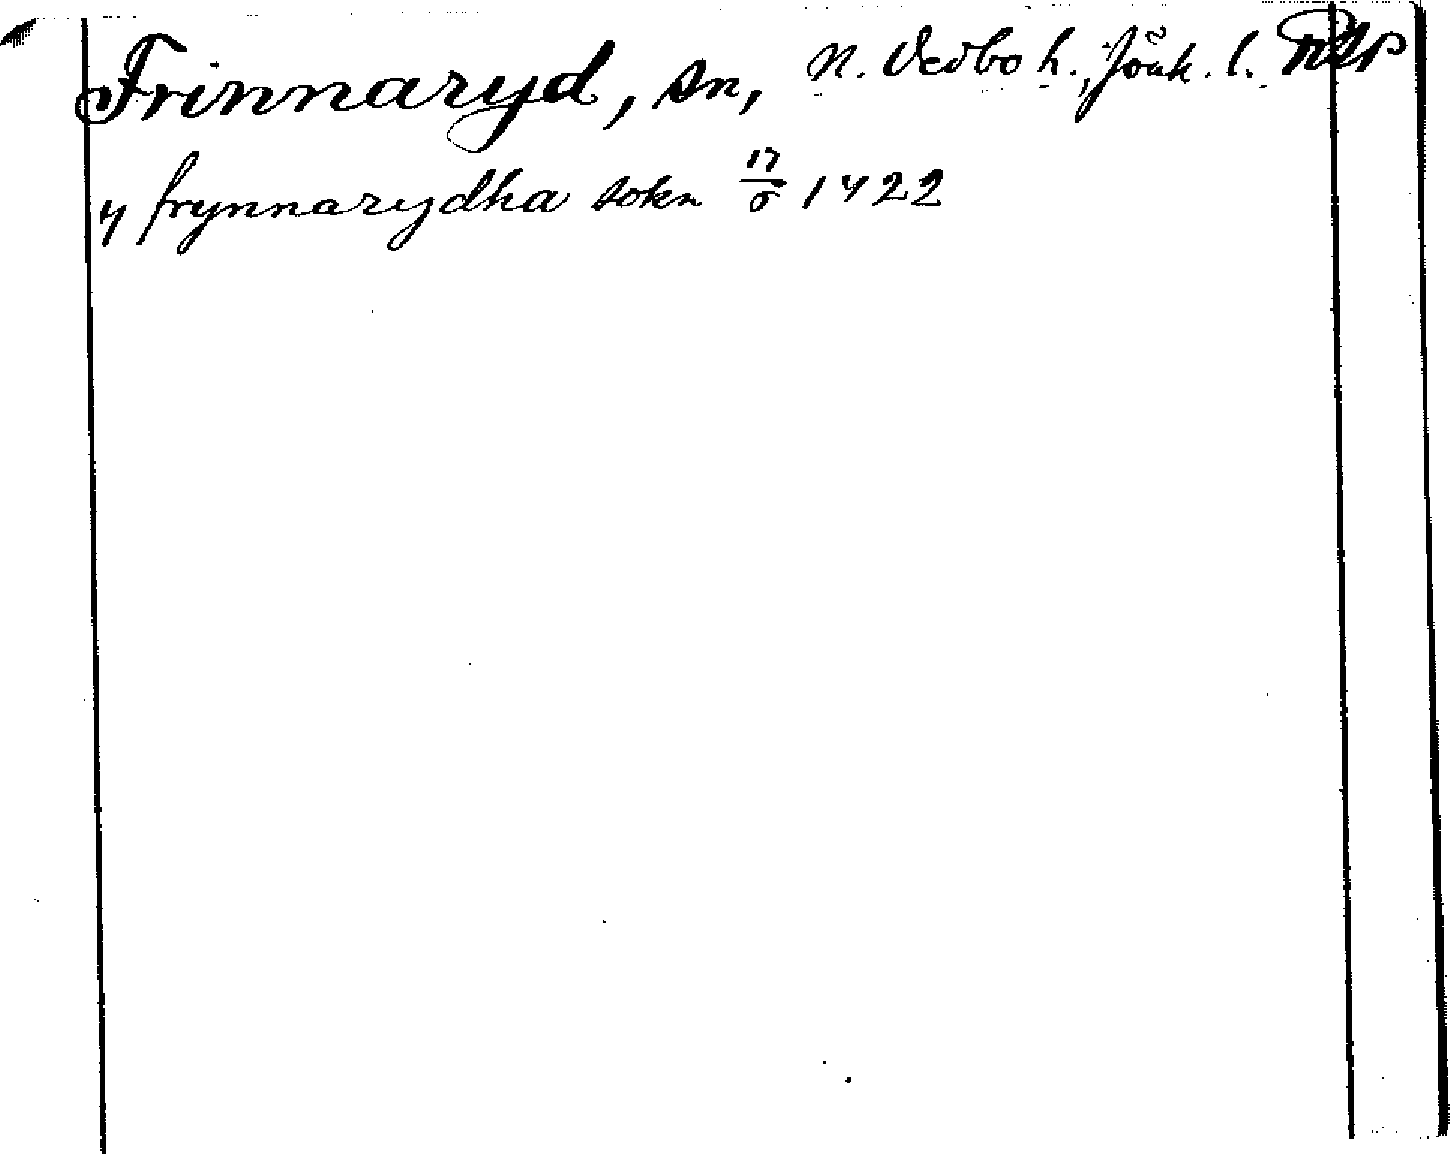 Frinnaryd, sn, N. Vedbo h., Jönk. l.
y frynnarydha sokn 17/5 1422